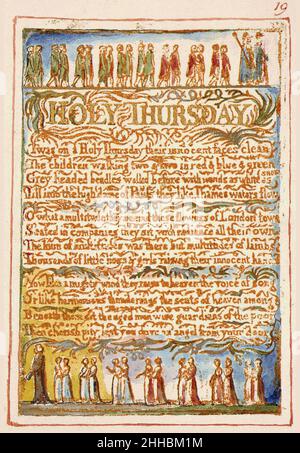 19
HOLY THURSDAY
Twas on a Holy Thursday their innocent faces clean
The children walking two & two in red & blue & green
Grey headed beadles walkd before with wands as white as snow
Till into the high dome of Pauls they like Thames waters flow
O what a multitude they seemd these flowers of London town
Seated in companies they sit with radiance all their own
The hum of multitudes was there but multitudes of lambs
Thousands of little boys & girls raising their innocent hands
Now like a mighty wind they raise to heaven the voice of song
Or like harmonious thunderings the seats of heaven among
Beneath them sit the aged men wise guardians of the poor
Then cherish pity, lest you drive an angel from your door
alamy
www.alamy.com
2HHBM1M